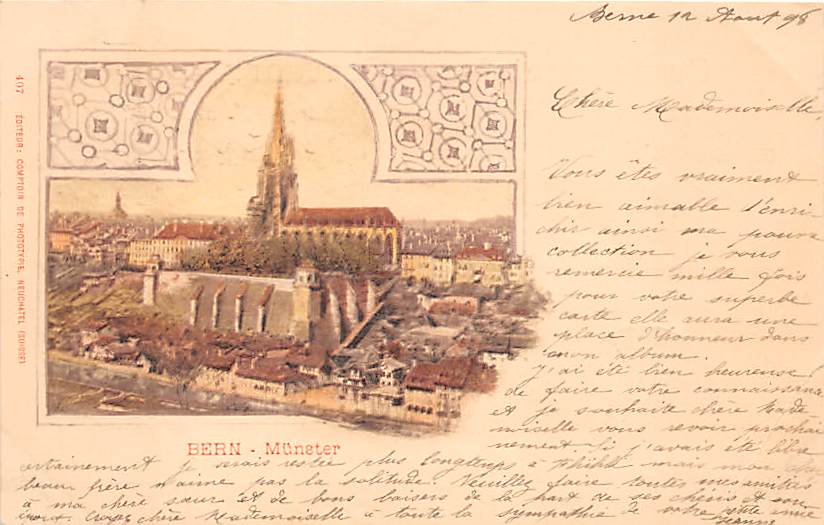 Berne 12 Août 98
Chère Mademoiselle,
Vous êtes vraiment
bien aimable d'enri-
chir ainsi ma pauvre
collection je vous
remercie mille fois
pour votre superbe
carte elle aura une
place d'honneur dans
mon album.
J'ai été bien heureuse
de faire votre connaissance
et je souhaite chère Made
moiselle vous revoir prochai
nement Si j'avais été libre
certainement je serais restée plus longtemps à mais mon cher
beau frère n'aime pas la solitude. Veuillez faire toutes mes amitiés
à ma chère sœur et de bons baisers de la part de ses chéris et son
Croyez chère Mademoiselle à toute la sympathie de votre petite amie
Jeanne
BERN - Münster
407 ÉDITEUR: COMPTOIR DE PHOTOTYPIE, NEUCHATEL (SUISSE)